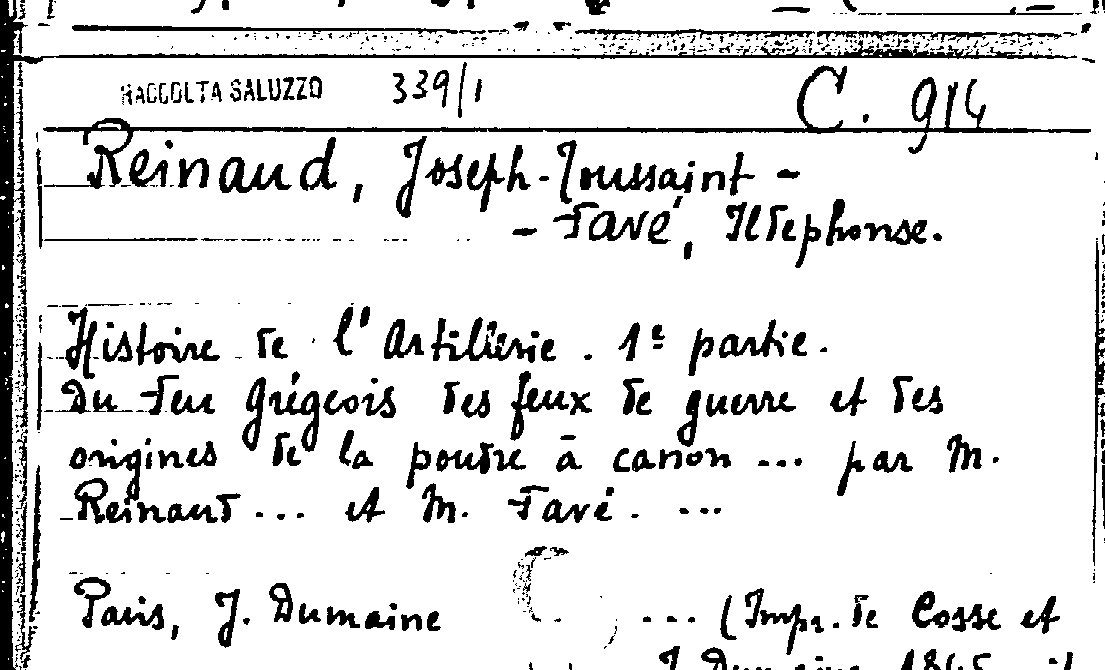 RACCOLTA SALUZZO 339/1 C. 914
Reinaud, Joseph-Toussaint -
- Favé, Ildephonse.
Histoire de l'Artillerie. 1e partie.
Du feu grégeois des feux de guerre et des
origines de la poudre à canon ... par M.
Reinaud ... et M. Favé. ...
Paris, J. Dumaine ... (Impr. de Cosse et
J. Dumaine 1845